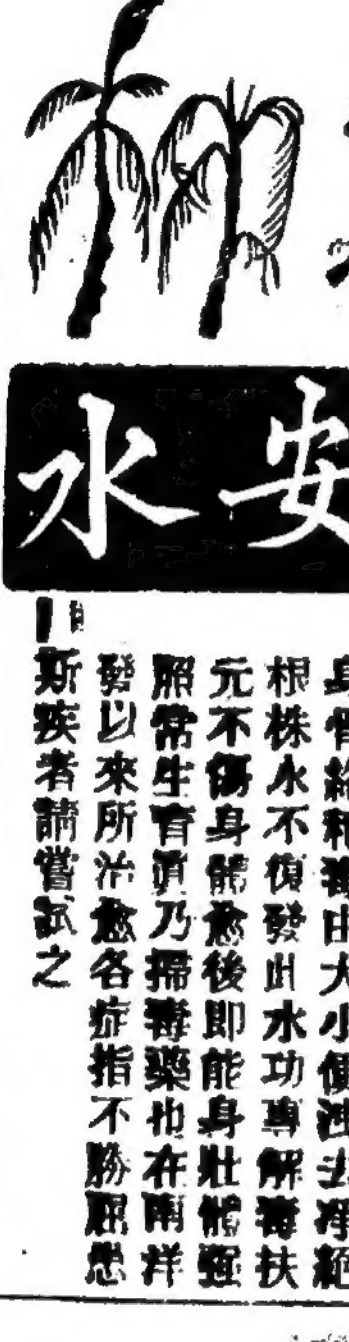 安水
身骨絡和毒由大小便洩去淨絕
根株永不復發此水功專解毒扶
元不傷身體愈後即能身壯體強
照常生育真乃掃毒藥也在南洋
發以來所治愈各症指不勝屈患
斯疾者請嘗試之